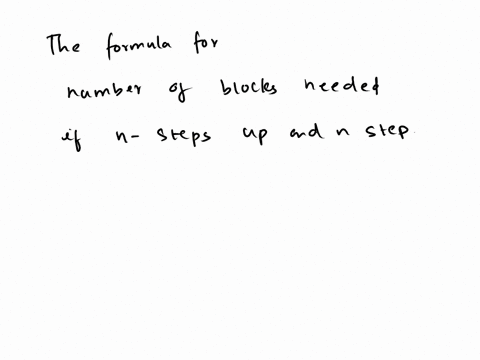 The formula for
number of blocks needed
if n- steps up and n step